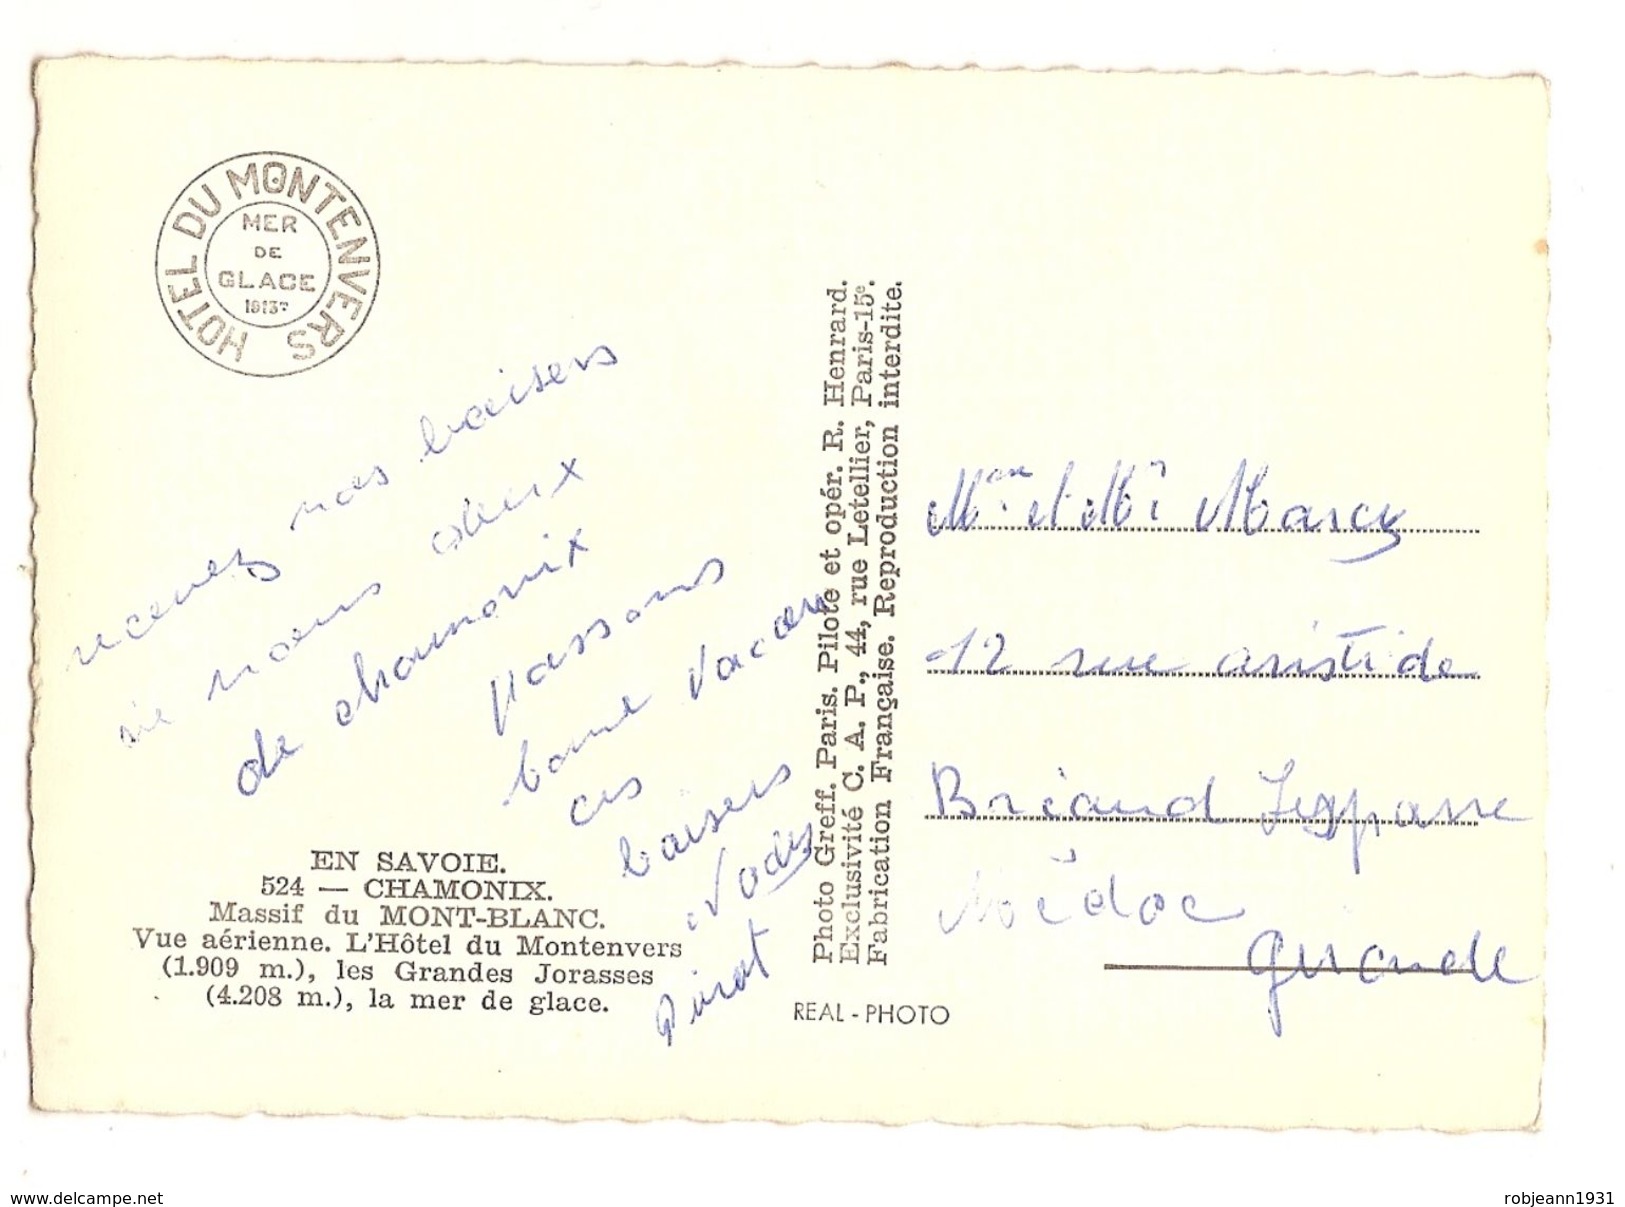 HOTEL DU MONTENVERS
MER
DE
GLACE
recevez nos baisers
nous deux
de chamonix
passons
bonne vacan
ces
baisers
EN SAVOIE.
524 — CHAMONIX.
Massif du MONT-BLANC.
Vue aérienne. L'Hôtel du Montenvers
(1.909 m.), les Grandes Jorasses
(4.208 m.), la mer de glace.
Photo Greff. Paris. Pilote et opér. R. Henrard.
Exclusivité C. A. P., 44, rue Letellier, Paris-15e.
Fabrication Française. Reproduction interdite.
REAL - PHOTO
Mme et Mr Marcy
12 rue aristide
Briand Lesparre
Médoc
Gironde
www.delcampe.net
robjeann1931